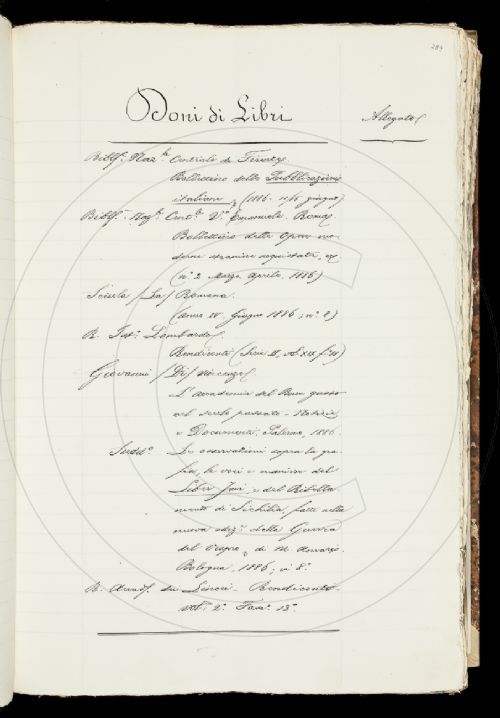 284
Doni di Libri
Allegato
Bibl.ª Naz.le Centrale di Firenze
Bollettino delle Pubblicazioni
italiane, (1886. 15 giugno)
Bibl.ª Naz.le Cent.le V.º Emanuele. Roma
Bollettino delle Opere mo-
derne straniere acquistate, ec
(nº 2 Marzo Aprile, 1886)
Scuola (La) Romana.
(Anno IV. Giugno 1886; nº 8)
R. Ist.º Lombardo
Rendiconti (Serie II, Vol. XIX f.
Giovanni (Di) Vincenzo
L'Accademia del Buon gusto
nel secolo passato - Notizie
e Documenti, Palermo, 1886.
Sudd.º
Le osservazioni sopra la gra-
fia, le voci e maniere del
Liber Jani, e del Ribella-
mento di Sichilia, fatte nella
nuova ediz.e della Guerra
del Vespro, di M. Amari.
Bologna, 1886; in 8.º
R. Accad. dei Lincei - Rendiconti.
vol. 2.º Fasc. 13º